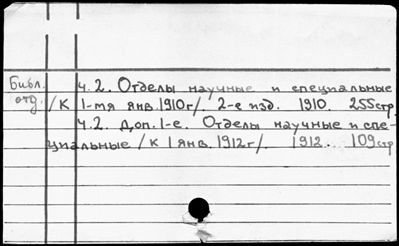 Библ. ч. 2. Отделы научные и специальные
отд. /К 1-мя янв. 1910 г/. 2-е изд. 1910. 255 стр.
ч. 2. Доп. 1-е. Отделы научные и спе-
циальные /к 1 янв. 1912 г/. 1912. 109 стр